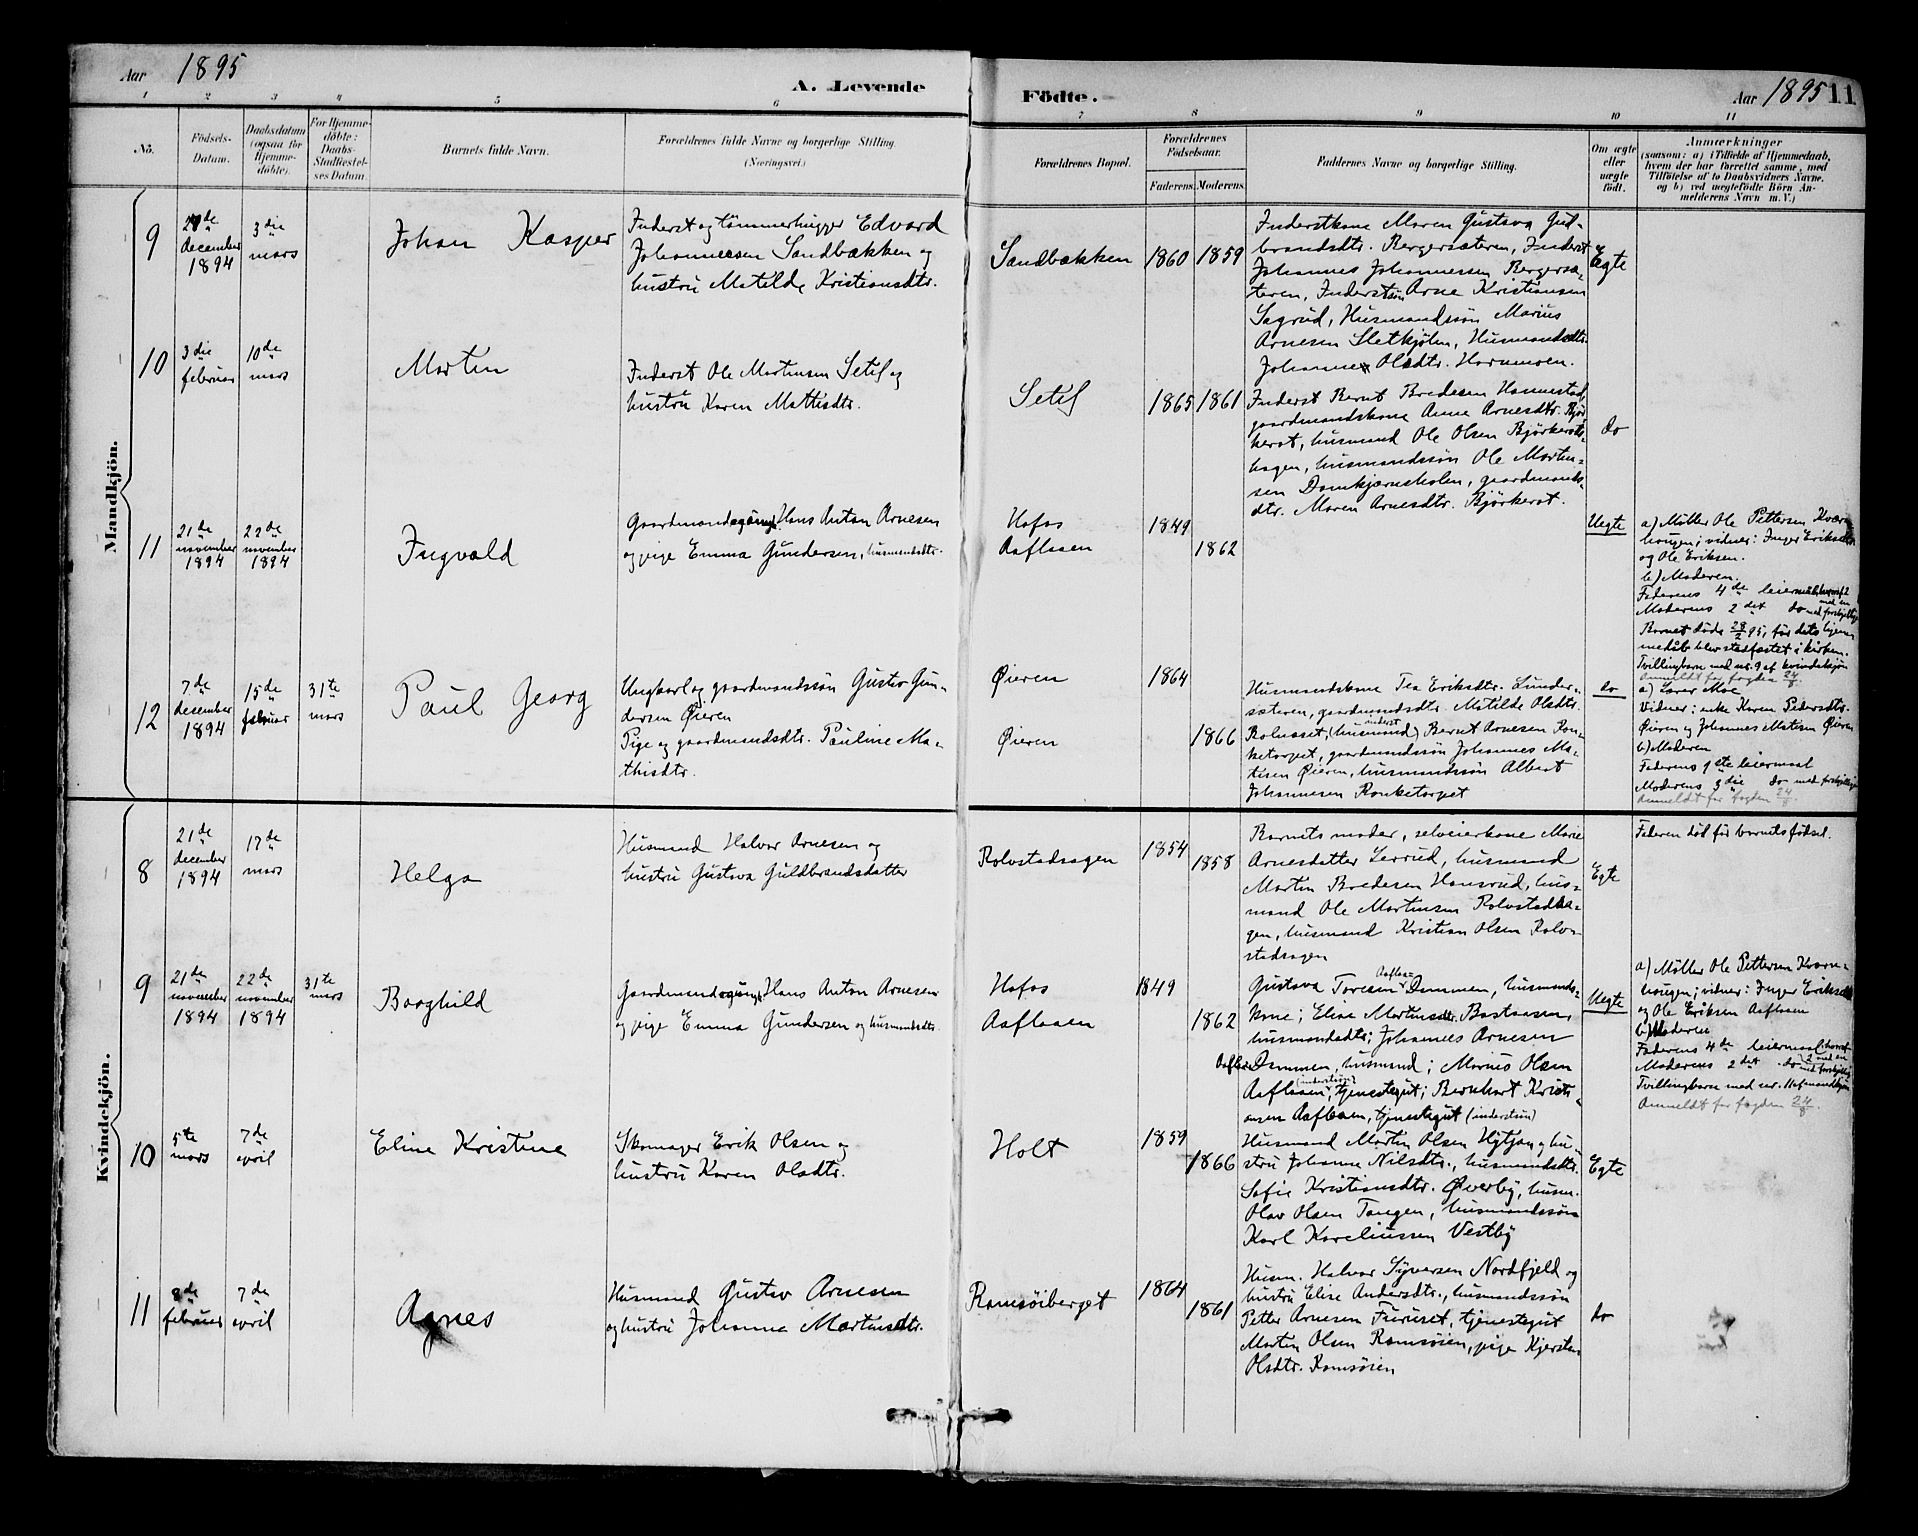 Aar 1895
A. Levende
Födte.
Aar 1895 11
1 2 3 4 5 6 7 8 9 10 11
No.
Födsels-
Datum.
Daabsdatum
(ogsaa for
Hjemme-
döbte).
For Hjemme-
döbte:
Daabs-
Stadfæstel-
ses Datum.
Barnets fulde Navn.
Forældrenes fulde Navne og borgerlige Stilling.
(Næringsvei.)
Forældrenes Bopæl.
Forældrenes
Födselsaar.
Faderens. Moderens.
Faddernes Navne og borgerlige Stilling.
Om ægte
eller
uægte
födt.
Anmærkninger
(saasom: a) i Tilfælde af Hjemmedaab,
hvem der har forrettet samme, med
Tilföielse af to Daabsvidners Navne.
og b) ved uægtefödte Börn An-
melderens Navn m. V.)
Mandkjön.
9
december
1894
3die
mars
Johan Kasper
Inderst og tømmerhugger Edvard
Johannessen Sandbækken og
hustru Matilde Kristiansdtr.
Sandbækken
1860
1859
Inderstkone Maren Gustava Gul-
brandsdtr. Bergersæteren, Inderst
Johannes Johannessen Bergersæ-
teren, Inderstsøn Arne Kristiansen
Sagrud, Husmandssøn Marius
Arnesen Sletkjølen, Husmandsdtr.
Johanne Olsdtr. Harnmoen.
Egte
10
3die
februar
10de
mars
Martin
Inderst Ole Martinsen Setil og
hustru Karen Mattisdtr.
Setil
1865
1861
Inderst Bernt Bredesen Hannestad,
gaardmandskone Anne Arnesdtr. Bjør-
kerot, husmand Ole Olsen Bjørkerots-
hagen, husmandssøn Ole Martin-
sen Damkjernsholen, gaardmands-
dtr. Maren Arnesdtr. Bjørkerot.
do
11
21de
november
1894
22de
november
1894
Ingvald
Hans Anton Arnesen
og pige Emma Gundersen, husmandsdtr.
Hofos
Asflaaen
1849
1862
Uegte
a) Møller Ole Pettersen Kværn-
haugen; vidner: Inger Eriksdtr.
og Ole Eriksen.
b) Moderen.
Faderens 4de leiermaal
Moderens 2det do
Barnet døde 28/2 95, før dets hjem-
medåb blev stadfæstet i kirken.
Tvillingbarn med nr. 9 af kvindekjøn
Anmeldt for fogden 24/8.
12
7de
desember
1894
15de
februar
31te
mars
Paul Georg
Ungkarl og gaardmandssøn Gustav Gun-
dersen Øieren
Pige og gaardmandsdtr. Pauline Ma-
thisdtr.
Øieren
Øieren
1864
1866
Husmandskone Tea Eriksdtr. Lunder-
sæteren, gaardmandsdtr. Matilde Olsdtr.
Rolvsset, (husmand) inderst Bernt Arnesen Ron-
ketorpet, gaardmandssøn Johannes Ma-
tisen Øieren, husmandssøn Albert
Johannesen Ronketorpet
do
a) Lærer Moe
Vidner: enke Karen Pedersdtr.
Øieren og Johannes Matisen Øieren
b) Moderen
Faderens 1ste leiermaal
Moderens 3die do med forskjellige
Anmeldt for fogden 24/8.
Kvindekjön.
8
21de
december
1894
17de
mars
Helga
Husmand Halvor Arnesen og
hustru Gustava Guldbrandsdatter
Rolvstadsagen
1854
1858
Barnets moder, selveierkone Marie
Arnesdatter Lerrud, husmand
Martin Bredesen Hansrud, hus-
mand Ole Martinsen Rolvstadha-
gen, husmand Kristian Olsen Rolv-
stadsagen
Egte
Faderen død før barnets fødsel.
9
21de
november
1894
22de
november
1894
31te
mars
Borghild
Hans Anton Arnesen
og pige Emma Gundersen og husmandsdtr.
Hofos
Asflaaen
1849
1862
Gustava Toresen Dammen, husmands-
kone; Eline Martinsdtr. Bastaasen,
husmandsdtr; Johannes Arnesen
Dammen, husmand; Marius Olsen
Asflaaen, (inderstsøn) tjenestegut; Bernhart Kristi-
ansen Asflaaen, tjenestegut (inderstsøn)
Uegte
a) Møller Ole Pettersen Kværn-
haugen; vidner: Inger Eriksdtr.
og Ole Eriksen Asflaaen
b) Moderen
Faderens 4de leiermaal
Moderens 2det do
Tvillingbarn med nr. 11 af mandkjøn
Anmeldt for fogden 24/8.
10
5te
mars
7de
april
Eline Kristine
Skomager Erik Olsen og
hustru Karen Olsdtr.
Holt
1859
1866
Husmand Martin Olsen Hytjan og hu-
stru Johanne Nilsdtr., husmandsdtr.
Sofie Kristiansdtr. Øverby, husm.
Olav Olsen Tangen, husmandssøn
Karl Kareliussen Vestby
Egte
11
februar
7de
april
Agnes
Husmand Gustav Arnesen
og hustru Johanna Martinsdtr.
Ramsøiberget
1864
1861
Husm. Halvor Syversen Nordfjeld og
hustru Elise Andersdtr., husmandssøn
Petter Arnesen Furuset, tjenestegut
Martin Olsen Ramsøien, pige Kjersten
Olsdtr. Ramsøien
do